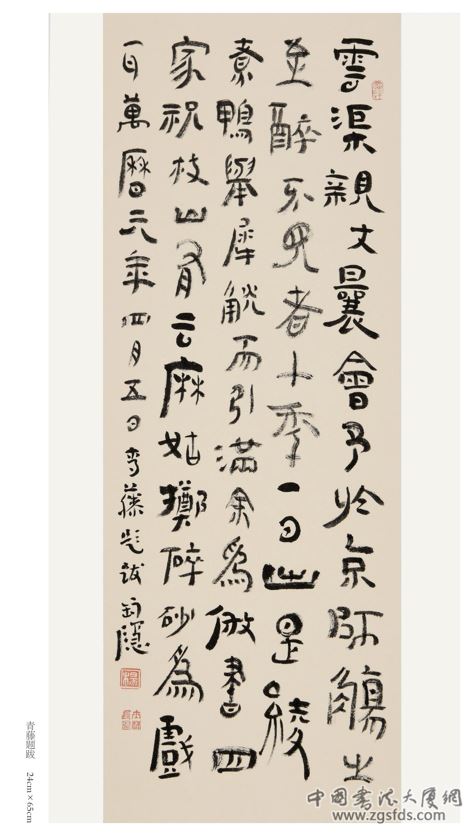 雲渠親丈曩會予於京師觴之
至醉不見者十季一日出是綾
煮鴨舉犀觥而引滿余為倣書四
家祝枝山有云麻姑擲碎砂為戲
耳萬曆元年四月五日青藤題跋隱
青藤題跋 24cm×65cm
中國書法大廈網
www.zgsfds.com